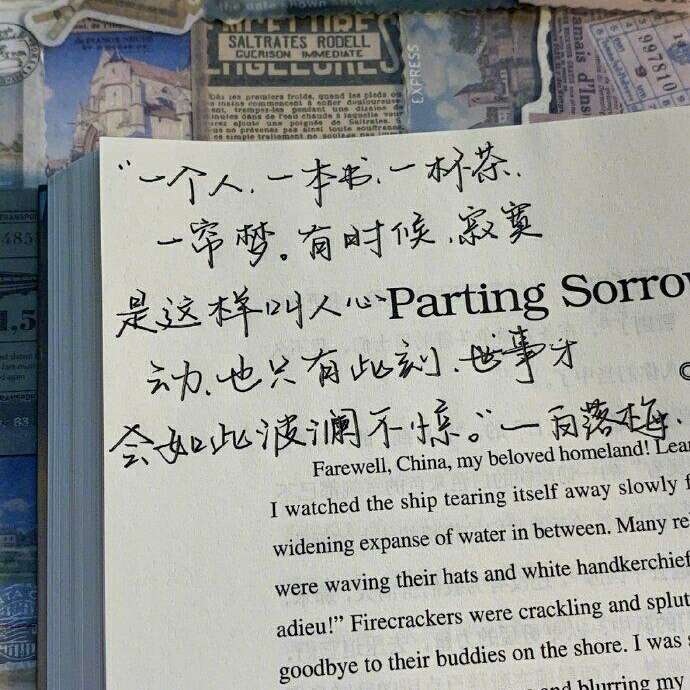 EXPRESS
SALTRATES RODELL
GUERISON IMMEDIATE
997810
"一个人、一本书、一杯茶、
一帘梦。有时候、寂寞
是这样叫人心
动、也只有此刻、世事才
会如此波澜不惊。"—白落梅.
Parting Sorrow
Farewell, China, my beloved homeland! Lean
I watched the ship tearing itself away slowly f
widening expanse of water in between. Many re
were waving their hats and white handkerchief
adieu!" Firecrackers were crackling and splut
goodbye to their buddies on the shore. I was s
and blurring my